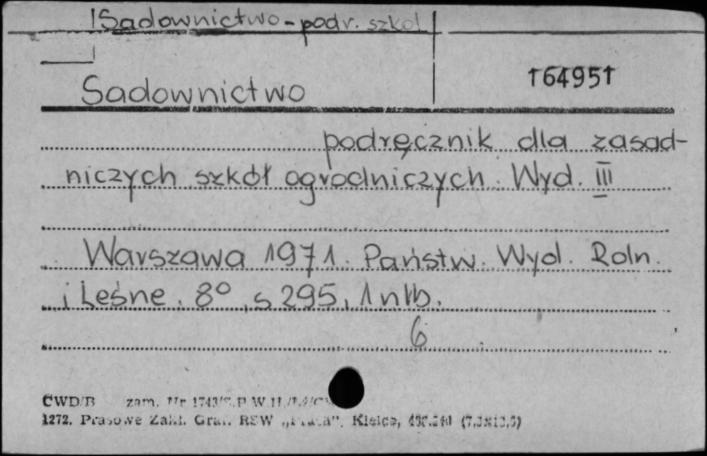 Sadownictwo - podr. szkol
164951
Sadownictwo
podręcznik dla zasad-
niczych szkół ogrodniczych. Wyd. III
Warszawa 1971. Państw. Wyd. Roln.
i Leśne. 8°, s 295, 1 nlb.
6
CWD/B zam. Nr
1272. Prasowe Zakł. Graf. RSW „Prasa", Kielce,